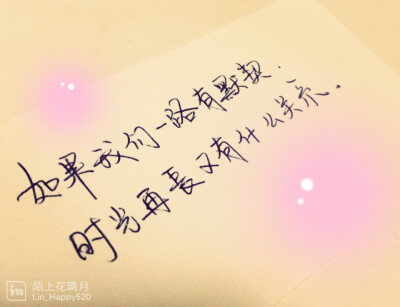 如果我们一路有默契.
时光再长又有什么关系.
in 陌上花璃月
Lin_Happy520